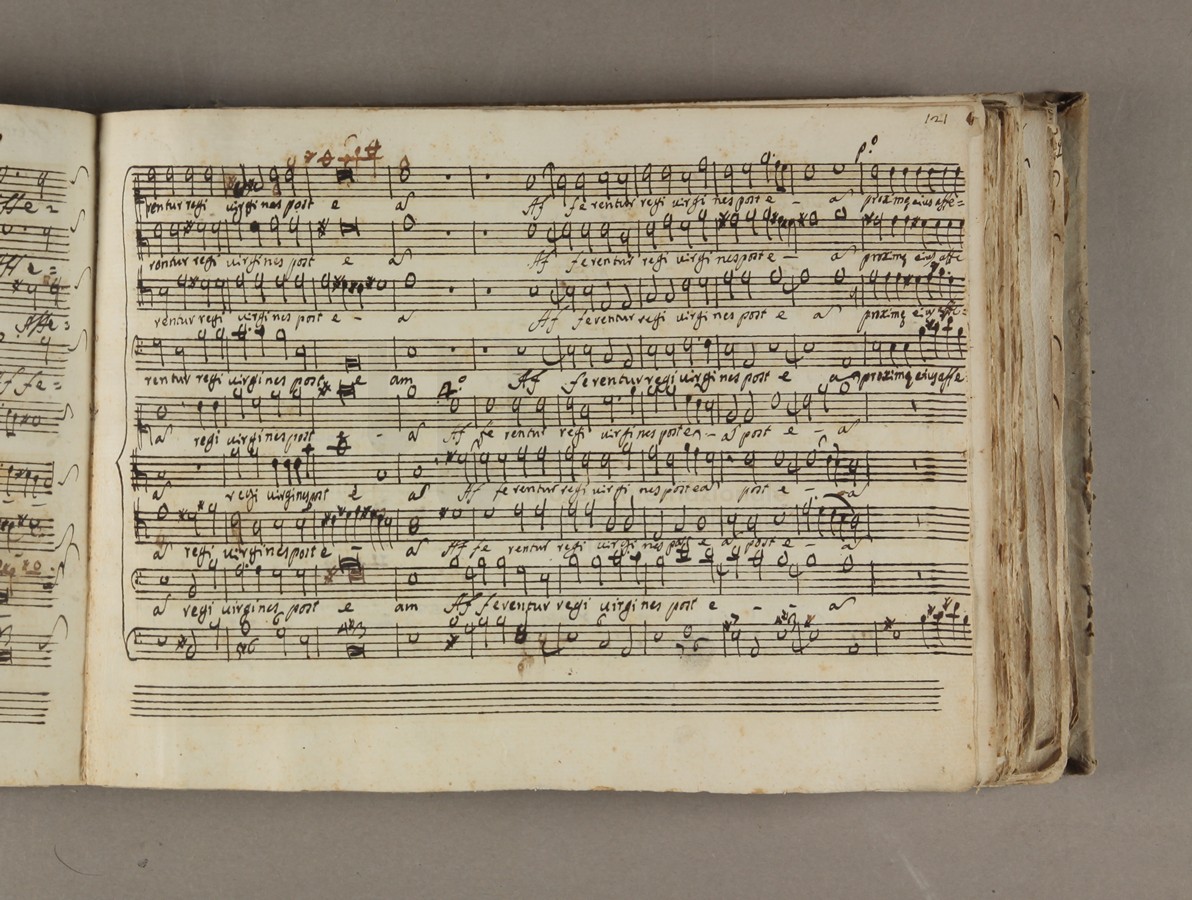 121
p.º
rentur regi virgines post e a Af ferentur regi virgines post e - a proximę eius affe=
rentur regi virgines post e a Af ferentur regi virgines post e - a proximę eius affe
rentur regi virgines post e - a Af ferentur regi virgines post e a proximę eius affe=
rentur regi virgines post e am Af ferentur regi virgines post e a proximę eius affe
a regi virgines post e - a Af fe rentur regi virgines post ea - a post e - a
a regi virgines post e a Af ferentur regi virgi nes post ea post e - a
a regi virgines post e - a Af fe rentur regi virgines post e a post e - a
a regi virgines post e am Af ferentur regi virgines post e - - a